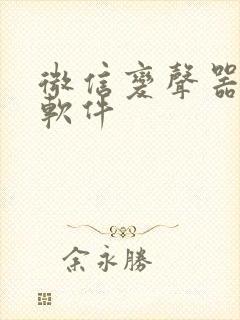 微信變聲器
軟件
余永勝